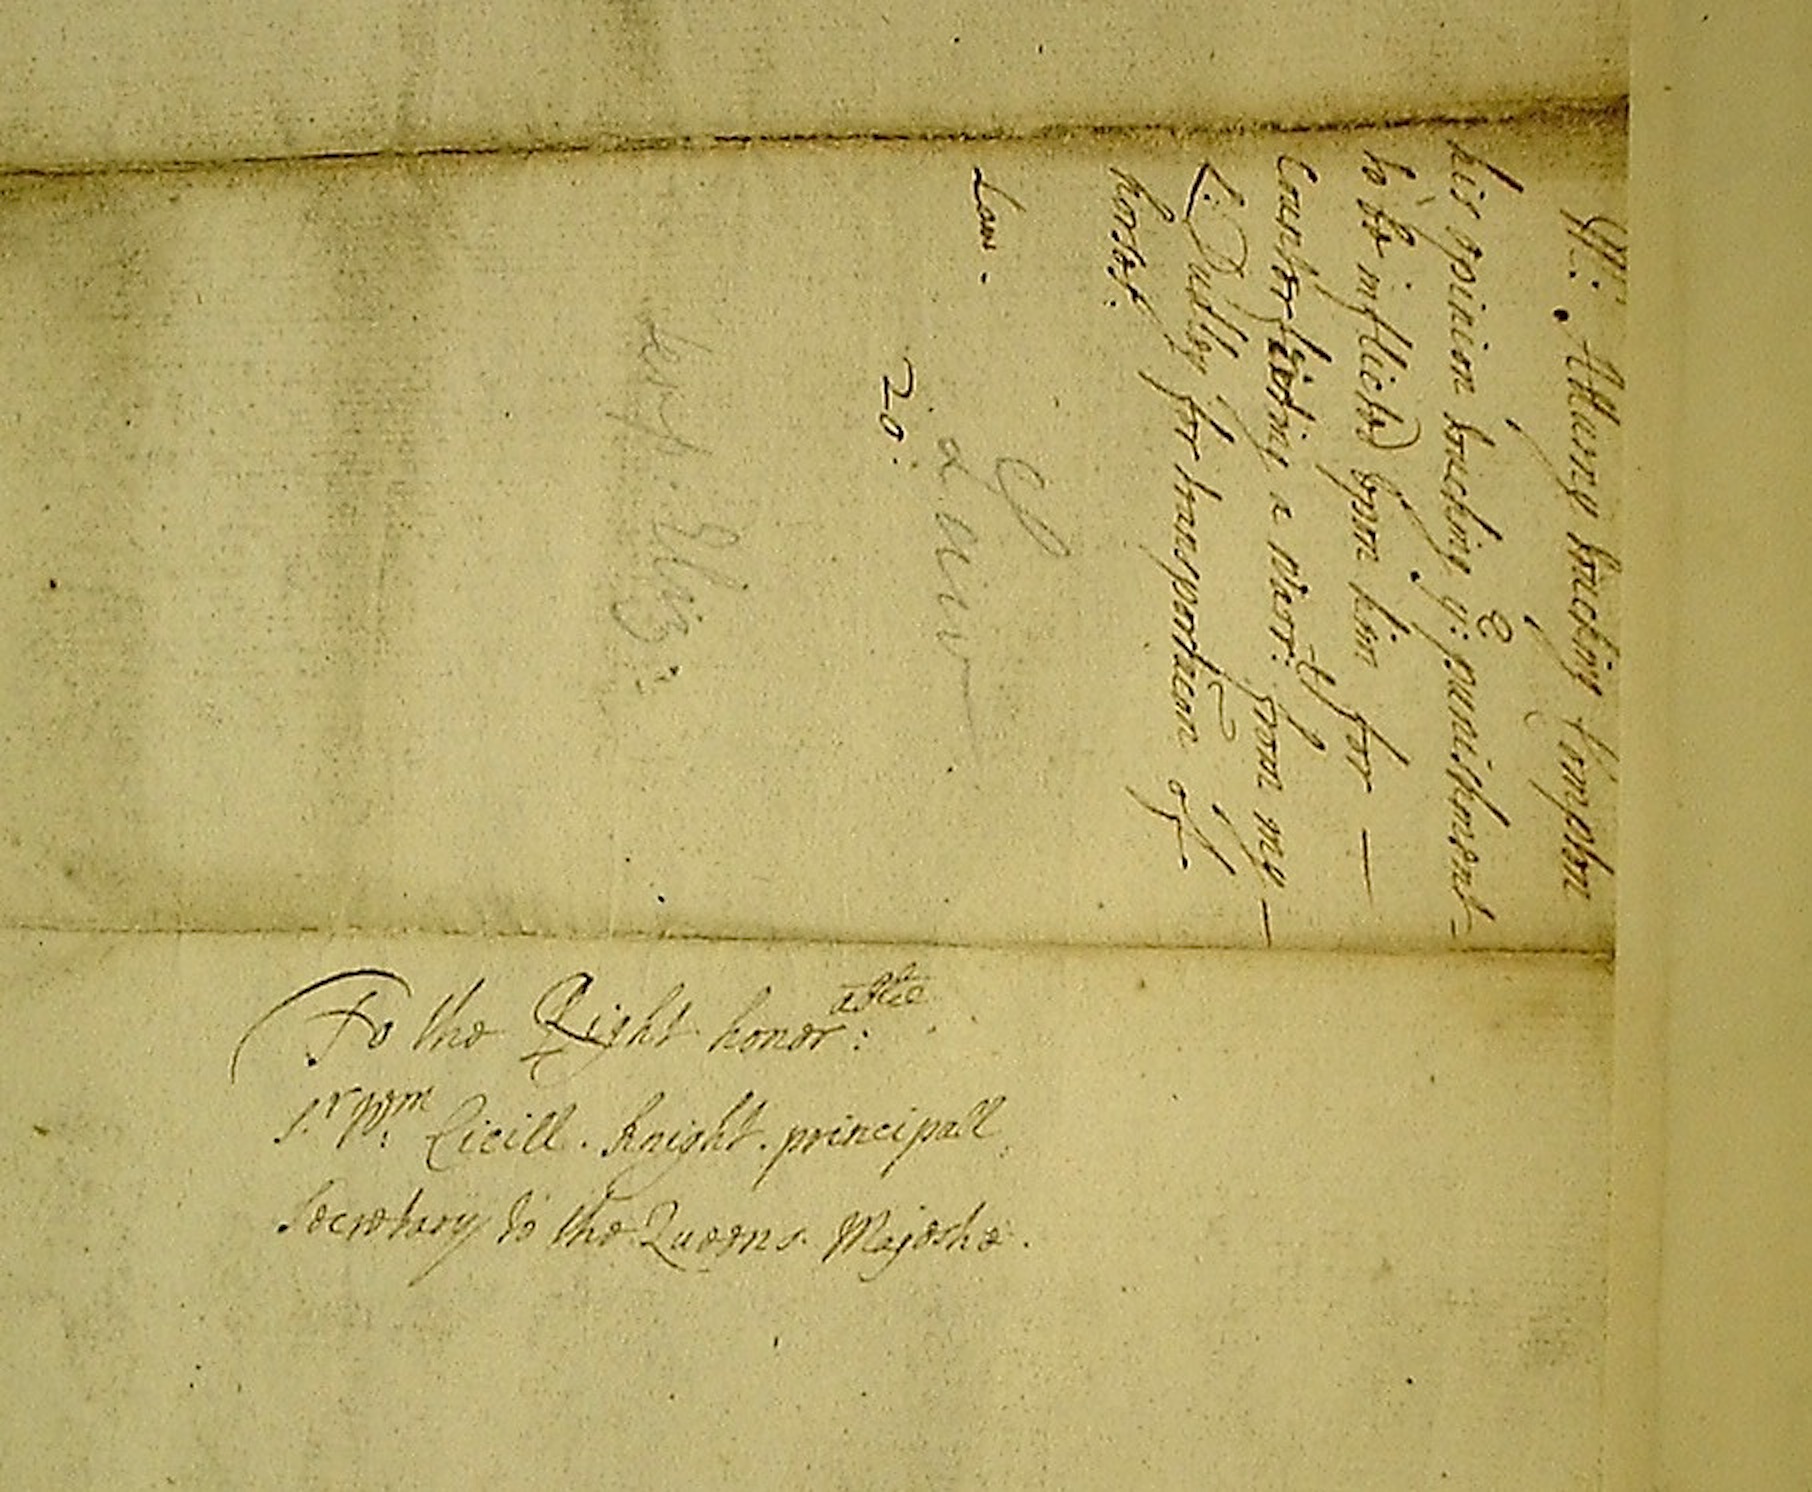 Mr. Atturny touching Compton
his opinion touching ye: punishment
to be inflicted upon him for —
Counterfieting a warrt: from my —
L: Dudley for transportacon of
horses:
Law.
20.
Law
temp. Eliz:
To the Right honorable:
Sr. Wm: Cicill. Knight. principall
Secretary to the Queens Majestie.